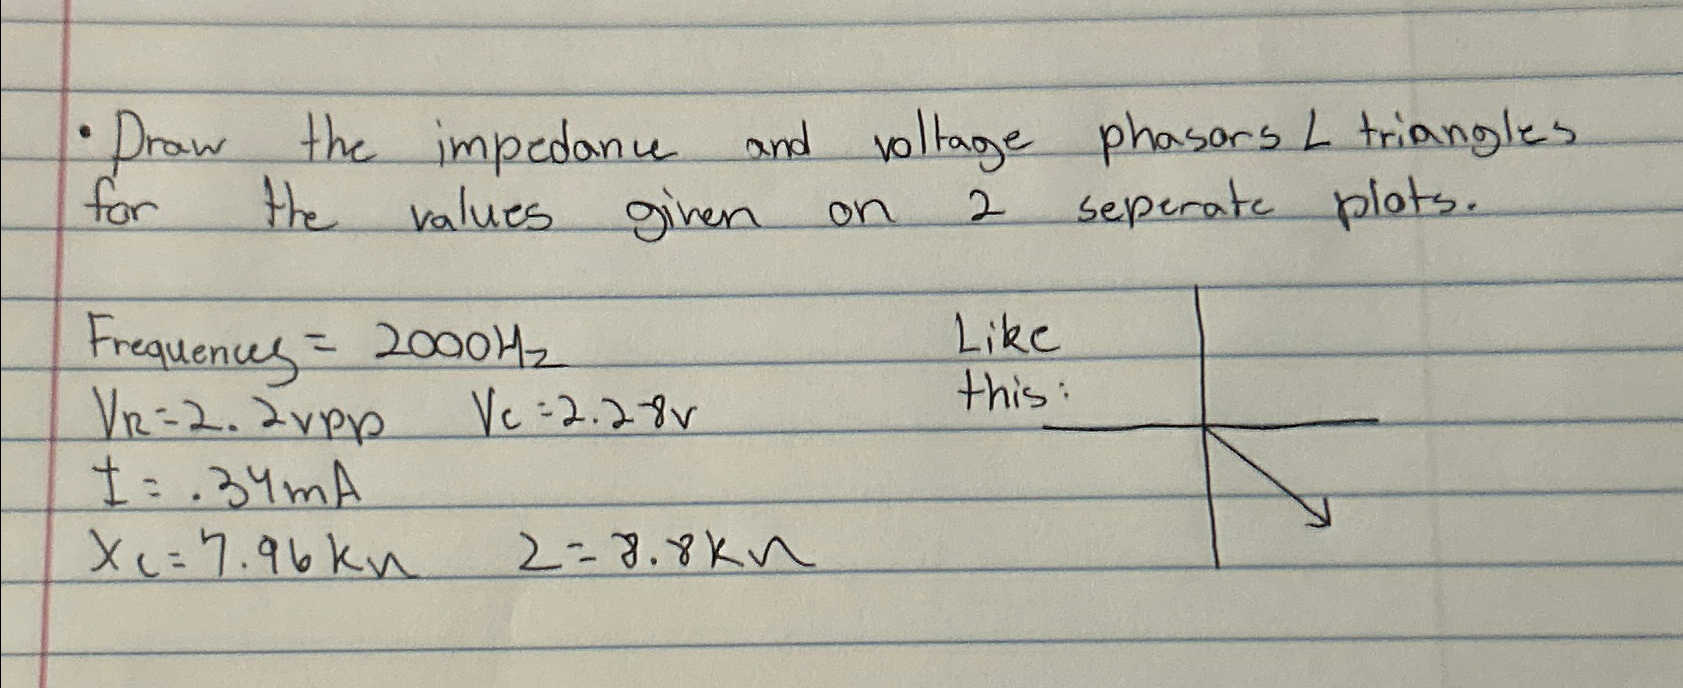 • Draw the impedance and voltage phasors L triangles
for the values given on 2 seperate plots.
Frequency = 2000Hz
VR=2.2vpp Vc=2.28v
I = .34mA
Xc=7.96kΩ Z=8.8kΩ
Like
this: